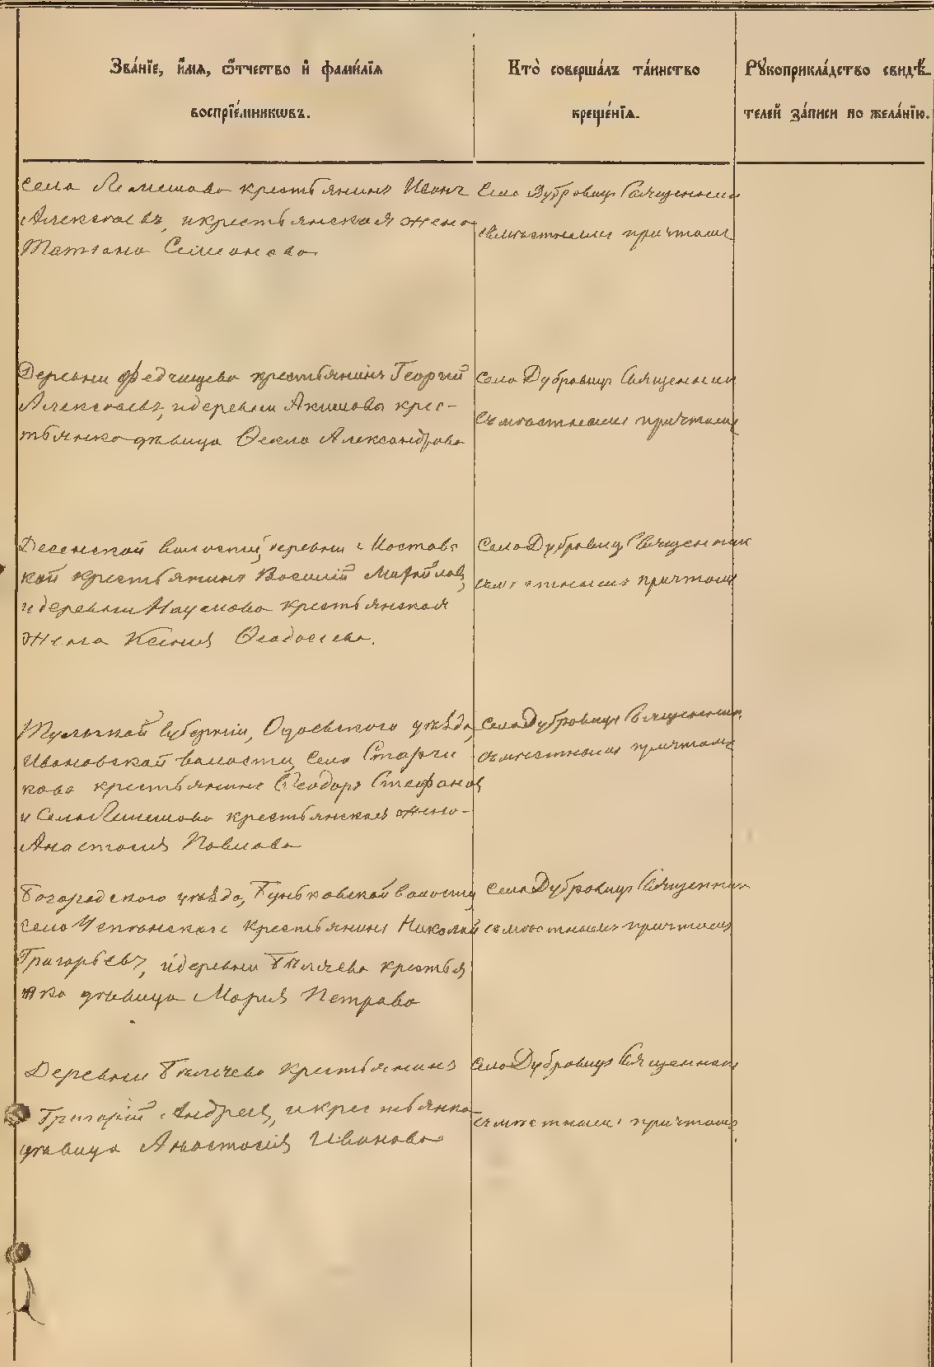 Зва́нїе, и҆́мѧ, ѻ҆́тчество и҆ фами́лїѧ
воспрїе́мникѡвъ.
Кто̀ соверша́лъ та́инство
креще́нїѧ.
Рꙋкоприкла́дство свидѣ́-
телей за́писи по жела́нїю.
Села Лемешова крестьянинъ Иванъ
Алексѣевъ, и крестьянская жена
Татіана Симонова
Села Дубровицъ Священникъ
съ мѣстнымъ причтомъ
Деревни Федчищева крестьянинъ Георгий
Алексѣевъ, и деревни Акишова крес-
тьянка дѣвица Ѳекла Александрова
Села Дубровицъ Священникъ
съ мѣстнымъ причтомъ
Десенской волости, деревни
крестьянинъ Василій Михайловъ,
и деревни Наумова крестьянская
жена Ксенія Ѳеодосеева.
Села Дубровицъ Священникъ
съ мѣстнымъ причтомъ
Тульской Губерніи, Одоевского уѣзда,
Ивановской волости, села
крестьянинъ Ѳеодоръ Стефановъ
и Села Лемешова крестьянская жена
Анастасія Павлова
Села Дубровицъ Священникъ
съ мѣстнымъ причтомъ
Богородского уѣзда, волости,
села Успенскаго крестьянинъ Николай
Григорьевъ, и деревни Бѣляева крестья
нка дѣвица Марія Петрова
Села Дубровицъ Священникъ
съ мѣстнымъ причтомъ
Деревни Бѣляева крестьянинъ
Григорій Андреевъ, и крестьянка
дѣвица Анастасія Иванова
Села Дубровицъ Священникъ
съ мѣстнымъ причтомъ